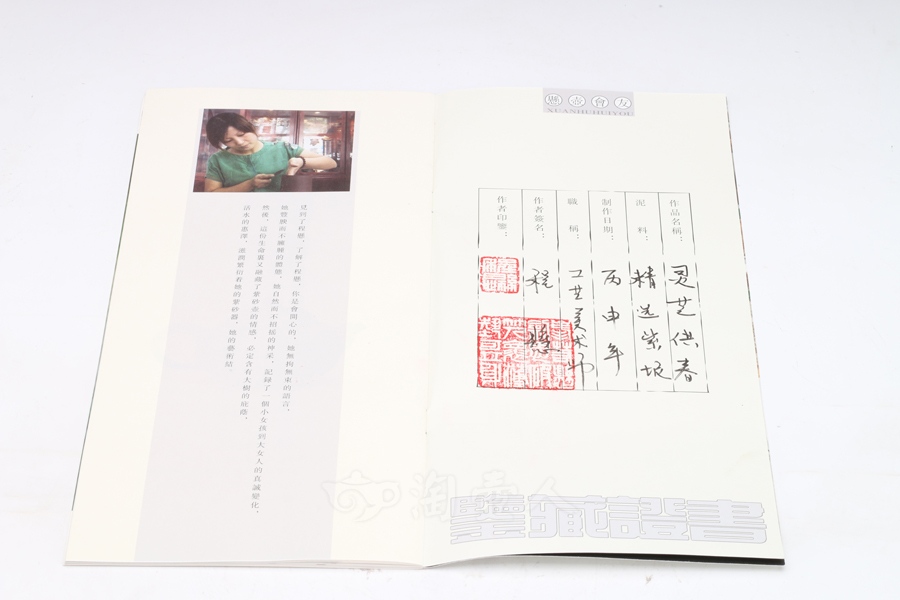 見到了程慧，了解了程慧，你是會開心的，她無拘無束的語言，
她豐腴而不臃腫的體態，她自然而不招搖的神采，記錄了一個小女孩到大女人的真誠變化，
然後，這份生命裏又融進了紫砂壺的情感，必定含有大樹的庇蔭，
活水的惠澤，進而繁衍着她的紫砂器，她的藝術結。
懸壺會友
XUANHUHUIYOU
作品名稱：灵芝供春
泥料：精选紫坭
制作日期：丙申年
職稱：工艺美术师
作者簽名：程慧
作者印鑒：
鑒藏證書